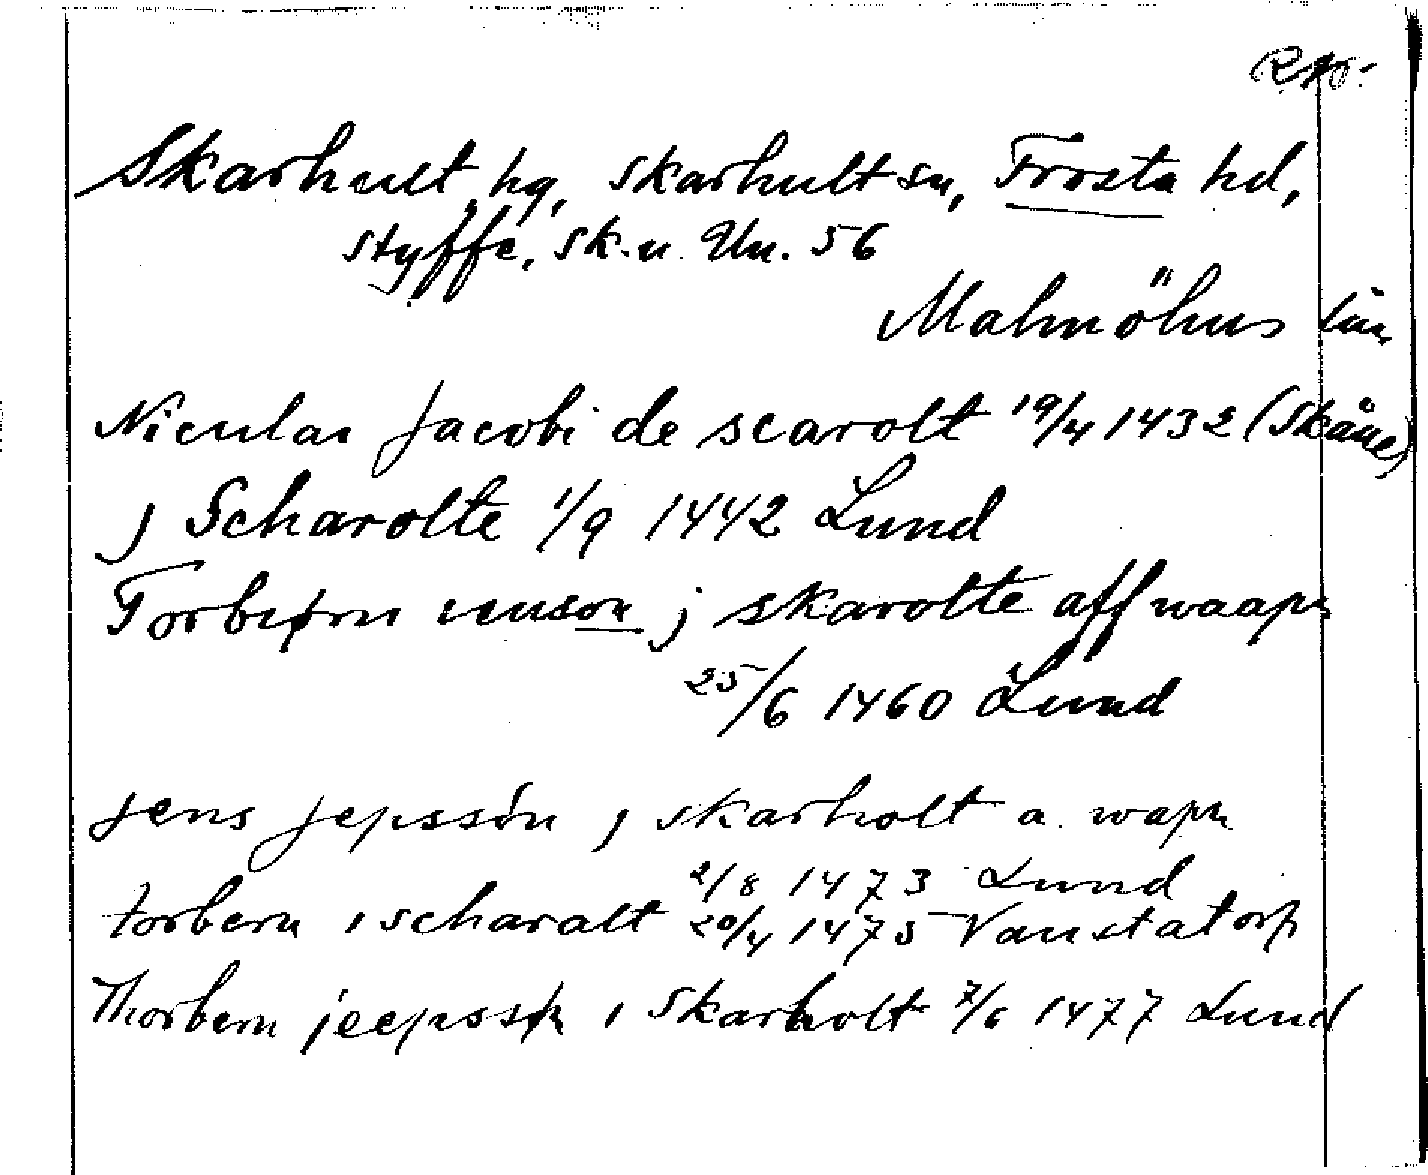 Skarhult, hg, Skarhult sn, Frosta hd,
Styffe, Sk. u. Un. 56
Malmöhus län
Niculas Jacobi de scarolt 19/4 1432 (Skåne)
j Scharolte 1/9 1442 Lund
Torbiørn j skarolte aff waapn
25/6 1460 Lund
jens jepssøn j skarholt a. wapn
2/8 1473 Lund
torbern i scharalt 20/4 1475 Vanstatorp
Thorbern jeepssøn i Skarholt 7/6 1477 Lund